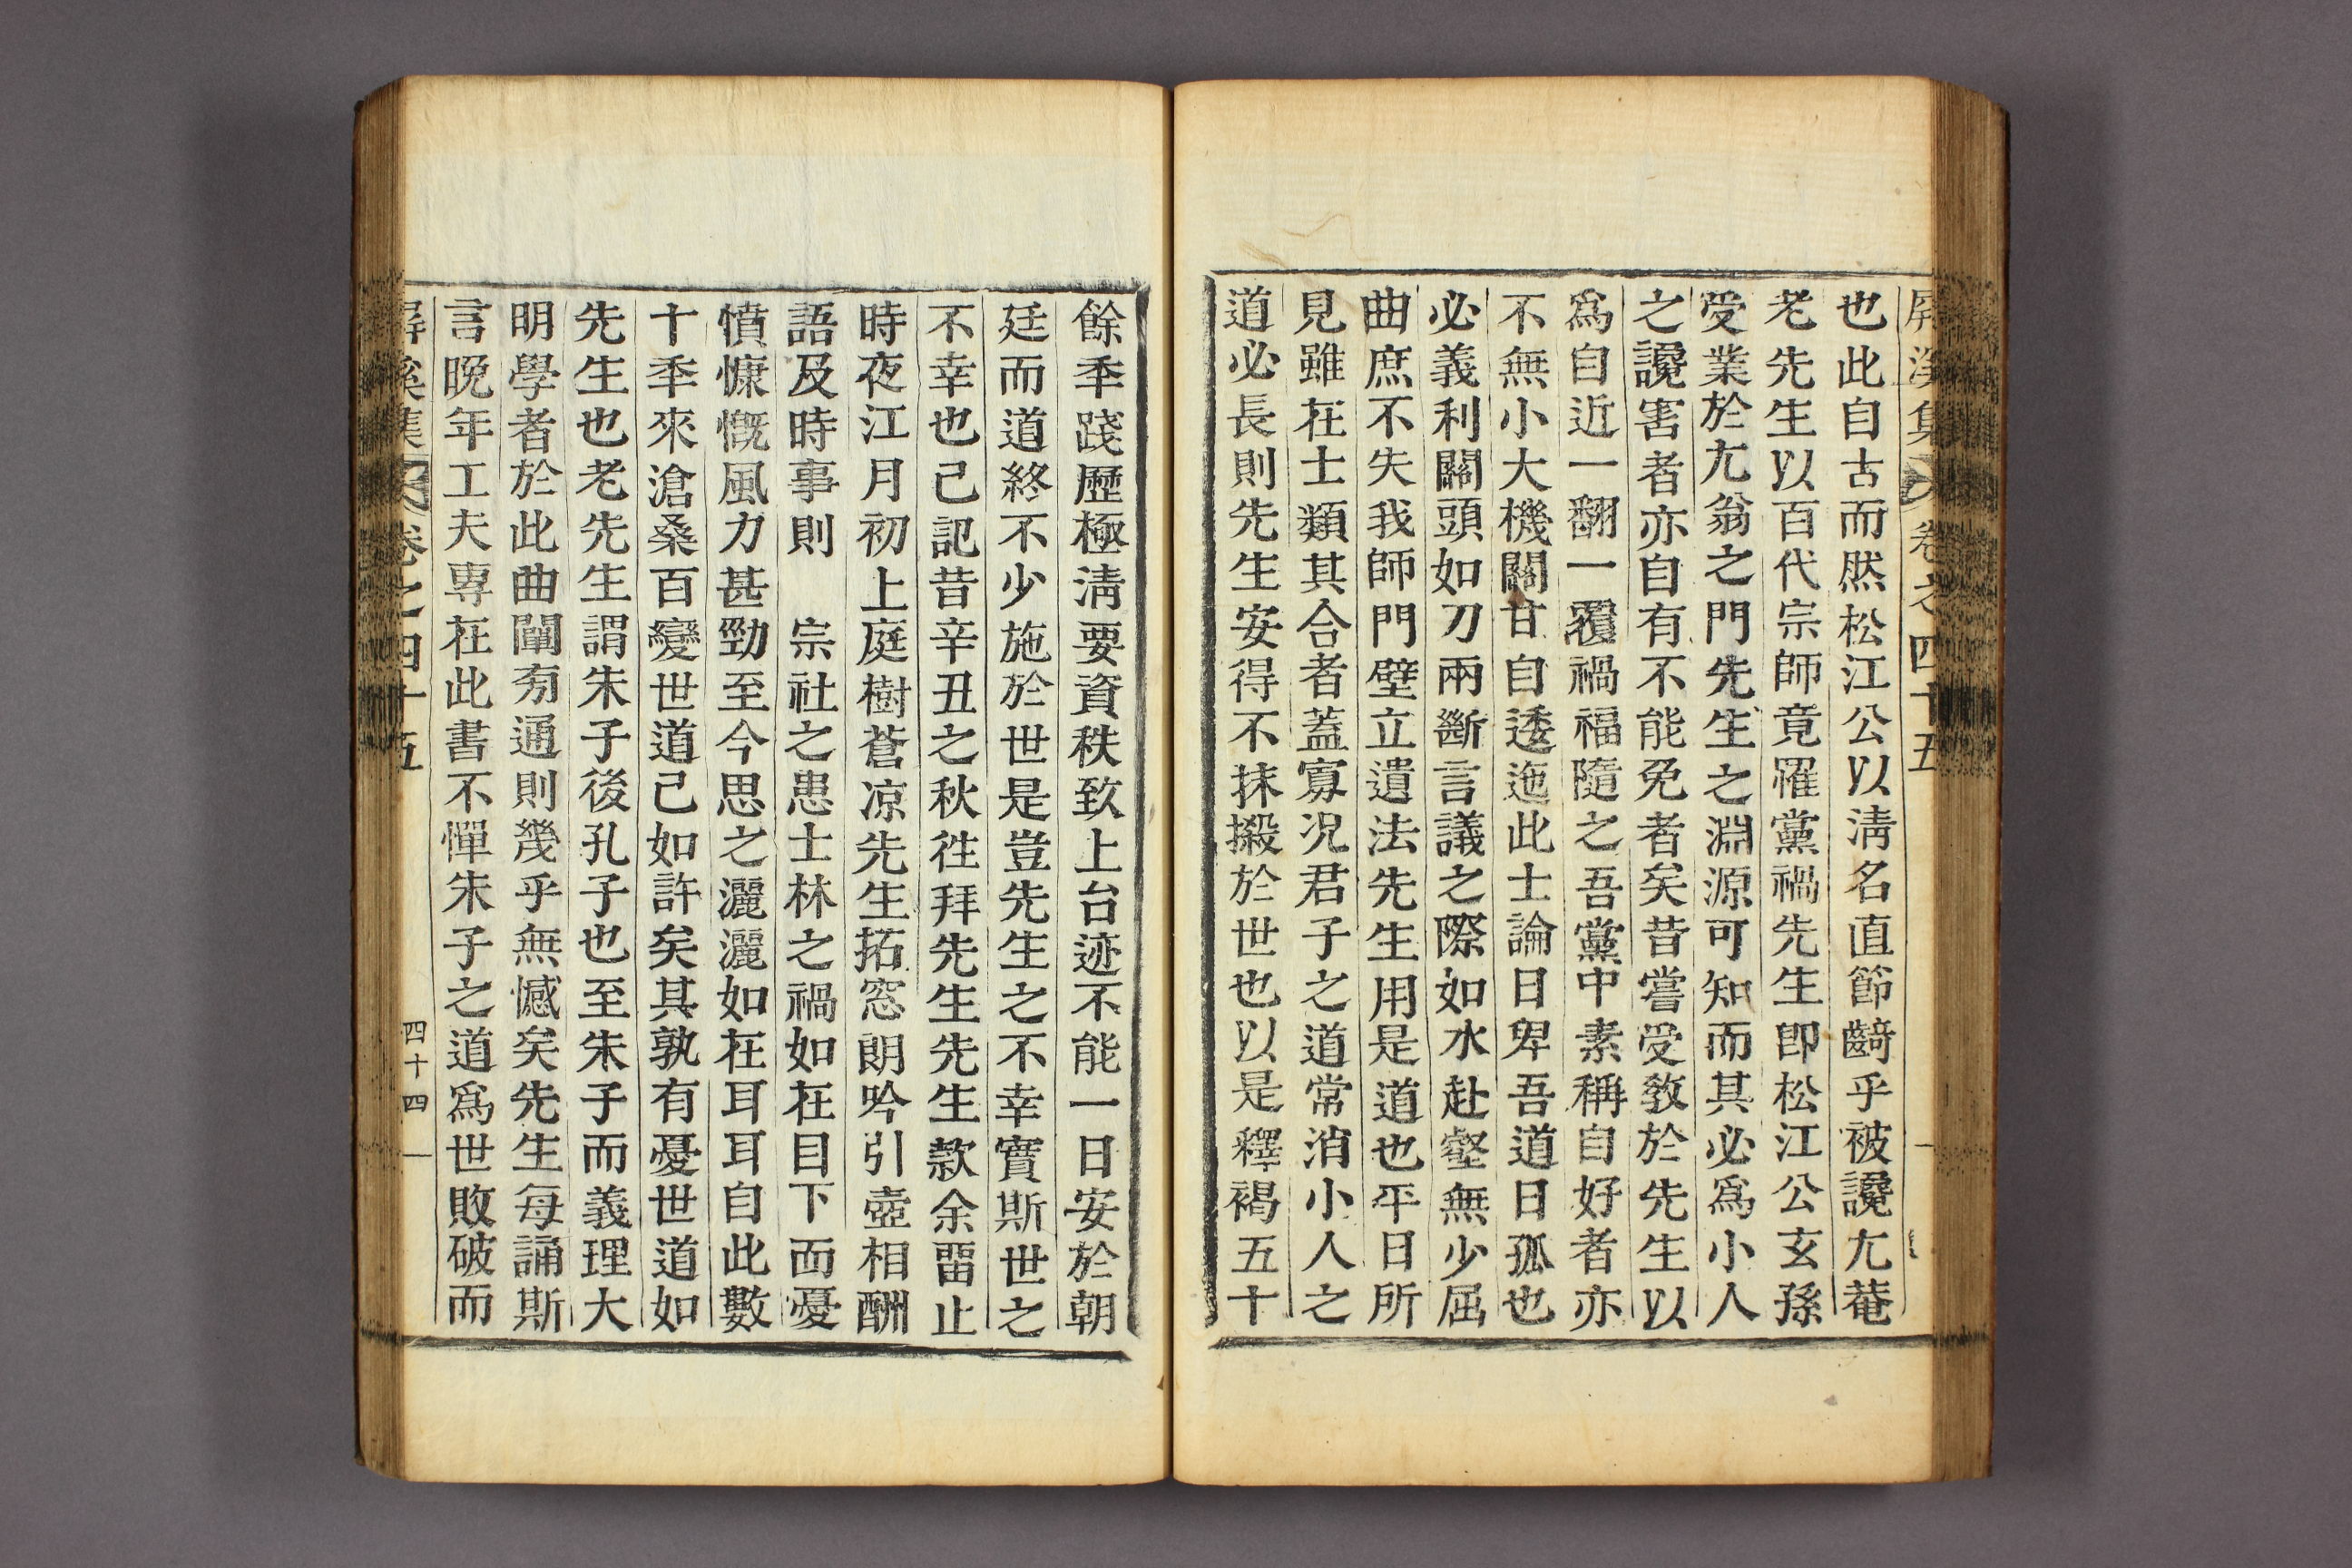 屛溪集 卷之四十五
也此自古而然松江公以淸名直節齮乎被讒尢菴
老先生以百代宗師竟罹黨禍先生卽松江公玄孫
受業於尢翁之門先生之淵源可知而其必爲小人
之讒害者亦自有不能免者矣昔嘗受敎於先生以
爲自近一翻一覆禍福隨之吾黨中素稱自好者亦
不無小大機關甘自逶迤此士論日卑吾道日孤也
必義利關頭如刀兩斷言議之際如水赴壑無少屈
曲庶不失我師門壁立遺法先生用是道也平日所
見雖在士類其合者蓋寡况君子之道常消小人之
道必長則先生安得不抹摋於世也以是釋褐五十
餘秊踐歷極淸要資秩致上台迹不能一日安於朝
廷而道終不少施於世是豈先生之不幸實斯世之
不幸也己記昔辛丑之秋徃拜先生先生款余畱止
時夜江月初上庭樹蒼凉先生拓窓朗吟引壺相酬
語及時事則 宗社之患士林之禍如在目下而憂
憤慷慨風力甚勁至今思之灑灑如在耳耳自此數
十秊來滄桑百變世道己如許矣其孰有憂世道如
先生也老先生謂朱子後孔子也至朱子而義理大
明學者於此曲闡旁通則幾乎無憾矣先生每誦斯
言晩年工夫専在此書不憚朱子之道爲世敗破而
屛溪集 卷之四十五 四十四